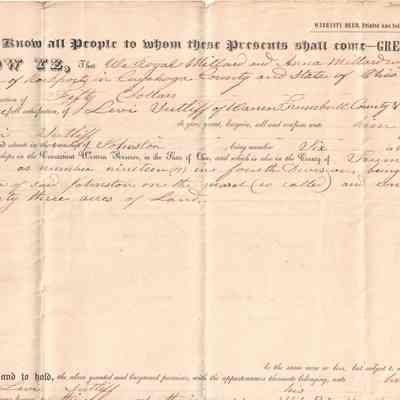 WARRANTY DEED, Printed and Sol
Know all People to whom these Presents shall come—GRE
OW YE, That We Royal Millard and Anna Millard
of in Cuyahoga County and State of Ohio
ation of Fifty Dollars
full satisfaction, of Levi Sutliff of Warren Trumbull County &
do give, grant, bargain, sell and confirm unto him
Sutliff
and situate in the township of Johnston being number Six in
ships in the Connecticut Western Reserve, in the State of Ohio, and which is also in the County of Trum
as number nineteen in fourth Division being
of said Johnston on the (so called) and
ty three acres of Land.
be the same more or less, but subject to
and to hold, the above granted and bargained premises, with the appurtenances thereunto belonging, unto
Levi Sutliff his